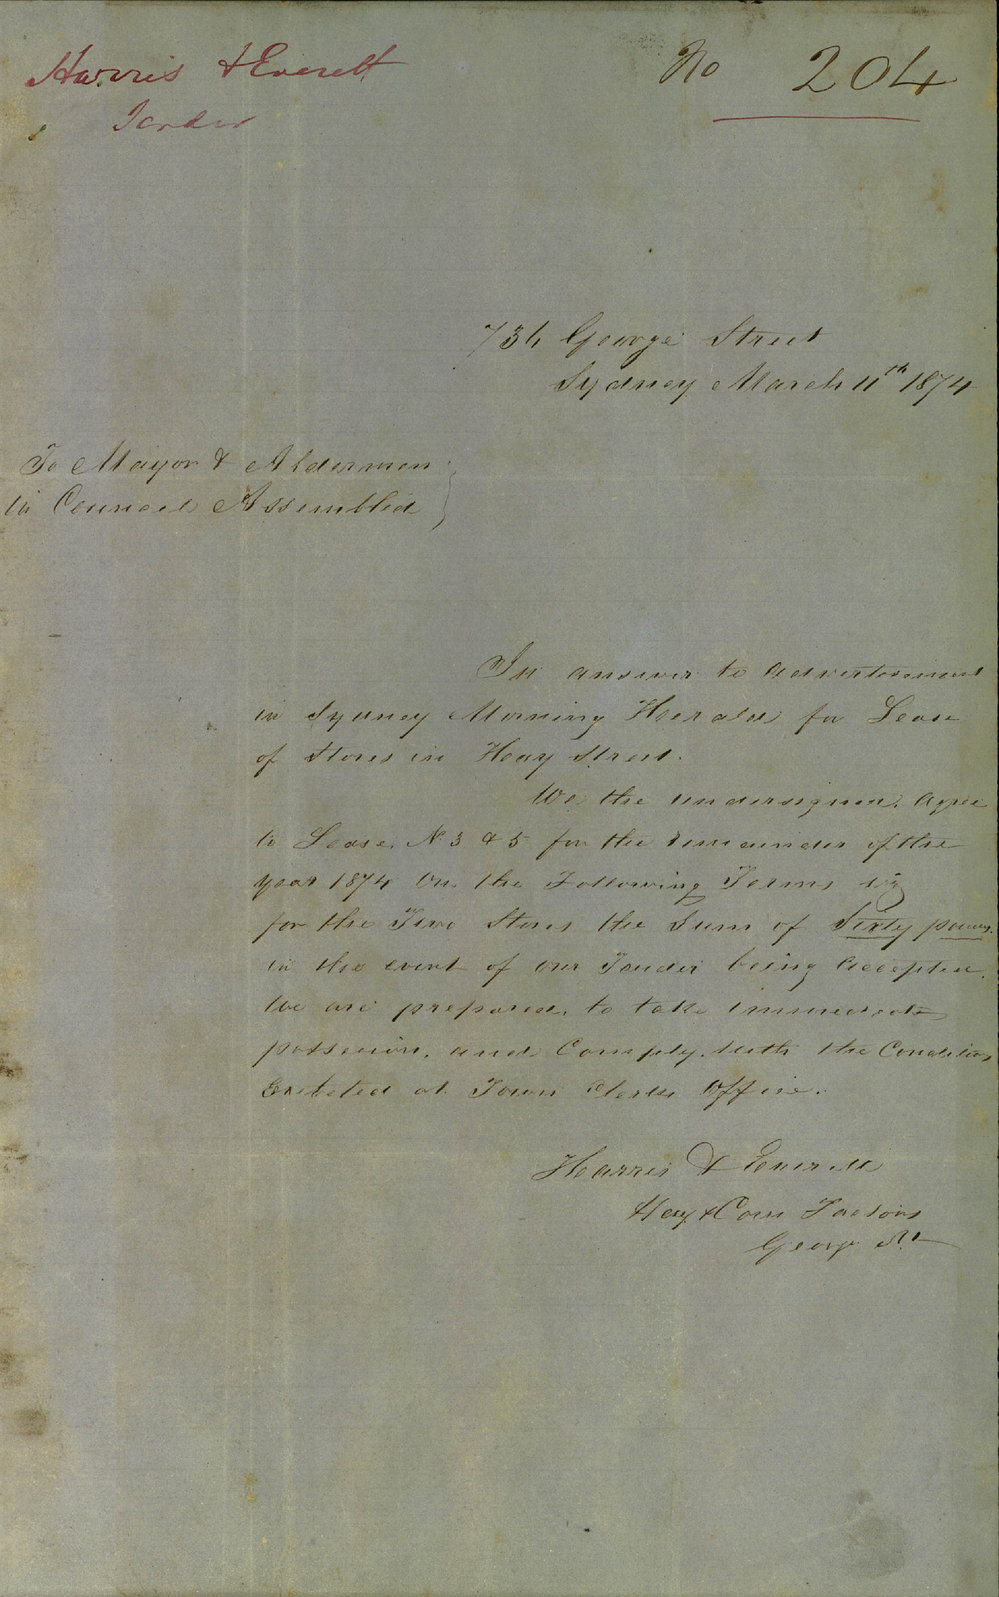 Harris & Everett
Tender
No 204
736 George Street
Sydney March 11th 1874
To Mayor & Aldermen
in Council Assembled
In answer to advertisement
in Sydney Morning Herald for Lease
of Stores in Hay Street.
We the undersigned, agree
to Lease, No 3 & 5 for the remainder of the
year 1874 on the Following Terms viz
for the Two Stores the Sum of Sixty pounds.
in the event of our Tender being accepted.
We are prepared, to take immediate
possession, and Comply. with the Conditions
Exibeted at Town Clerks Office.
Harris & Everett
Hay & Corn Factors
George St